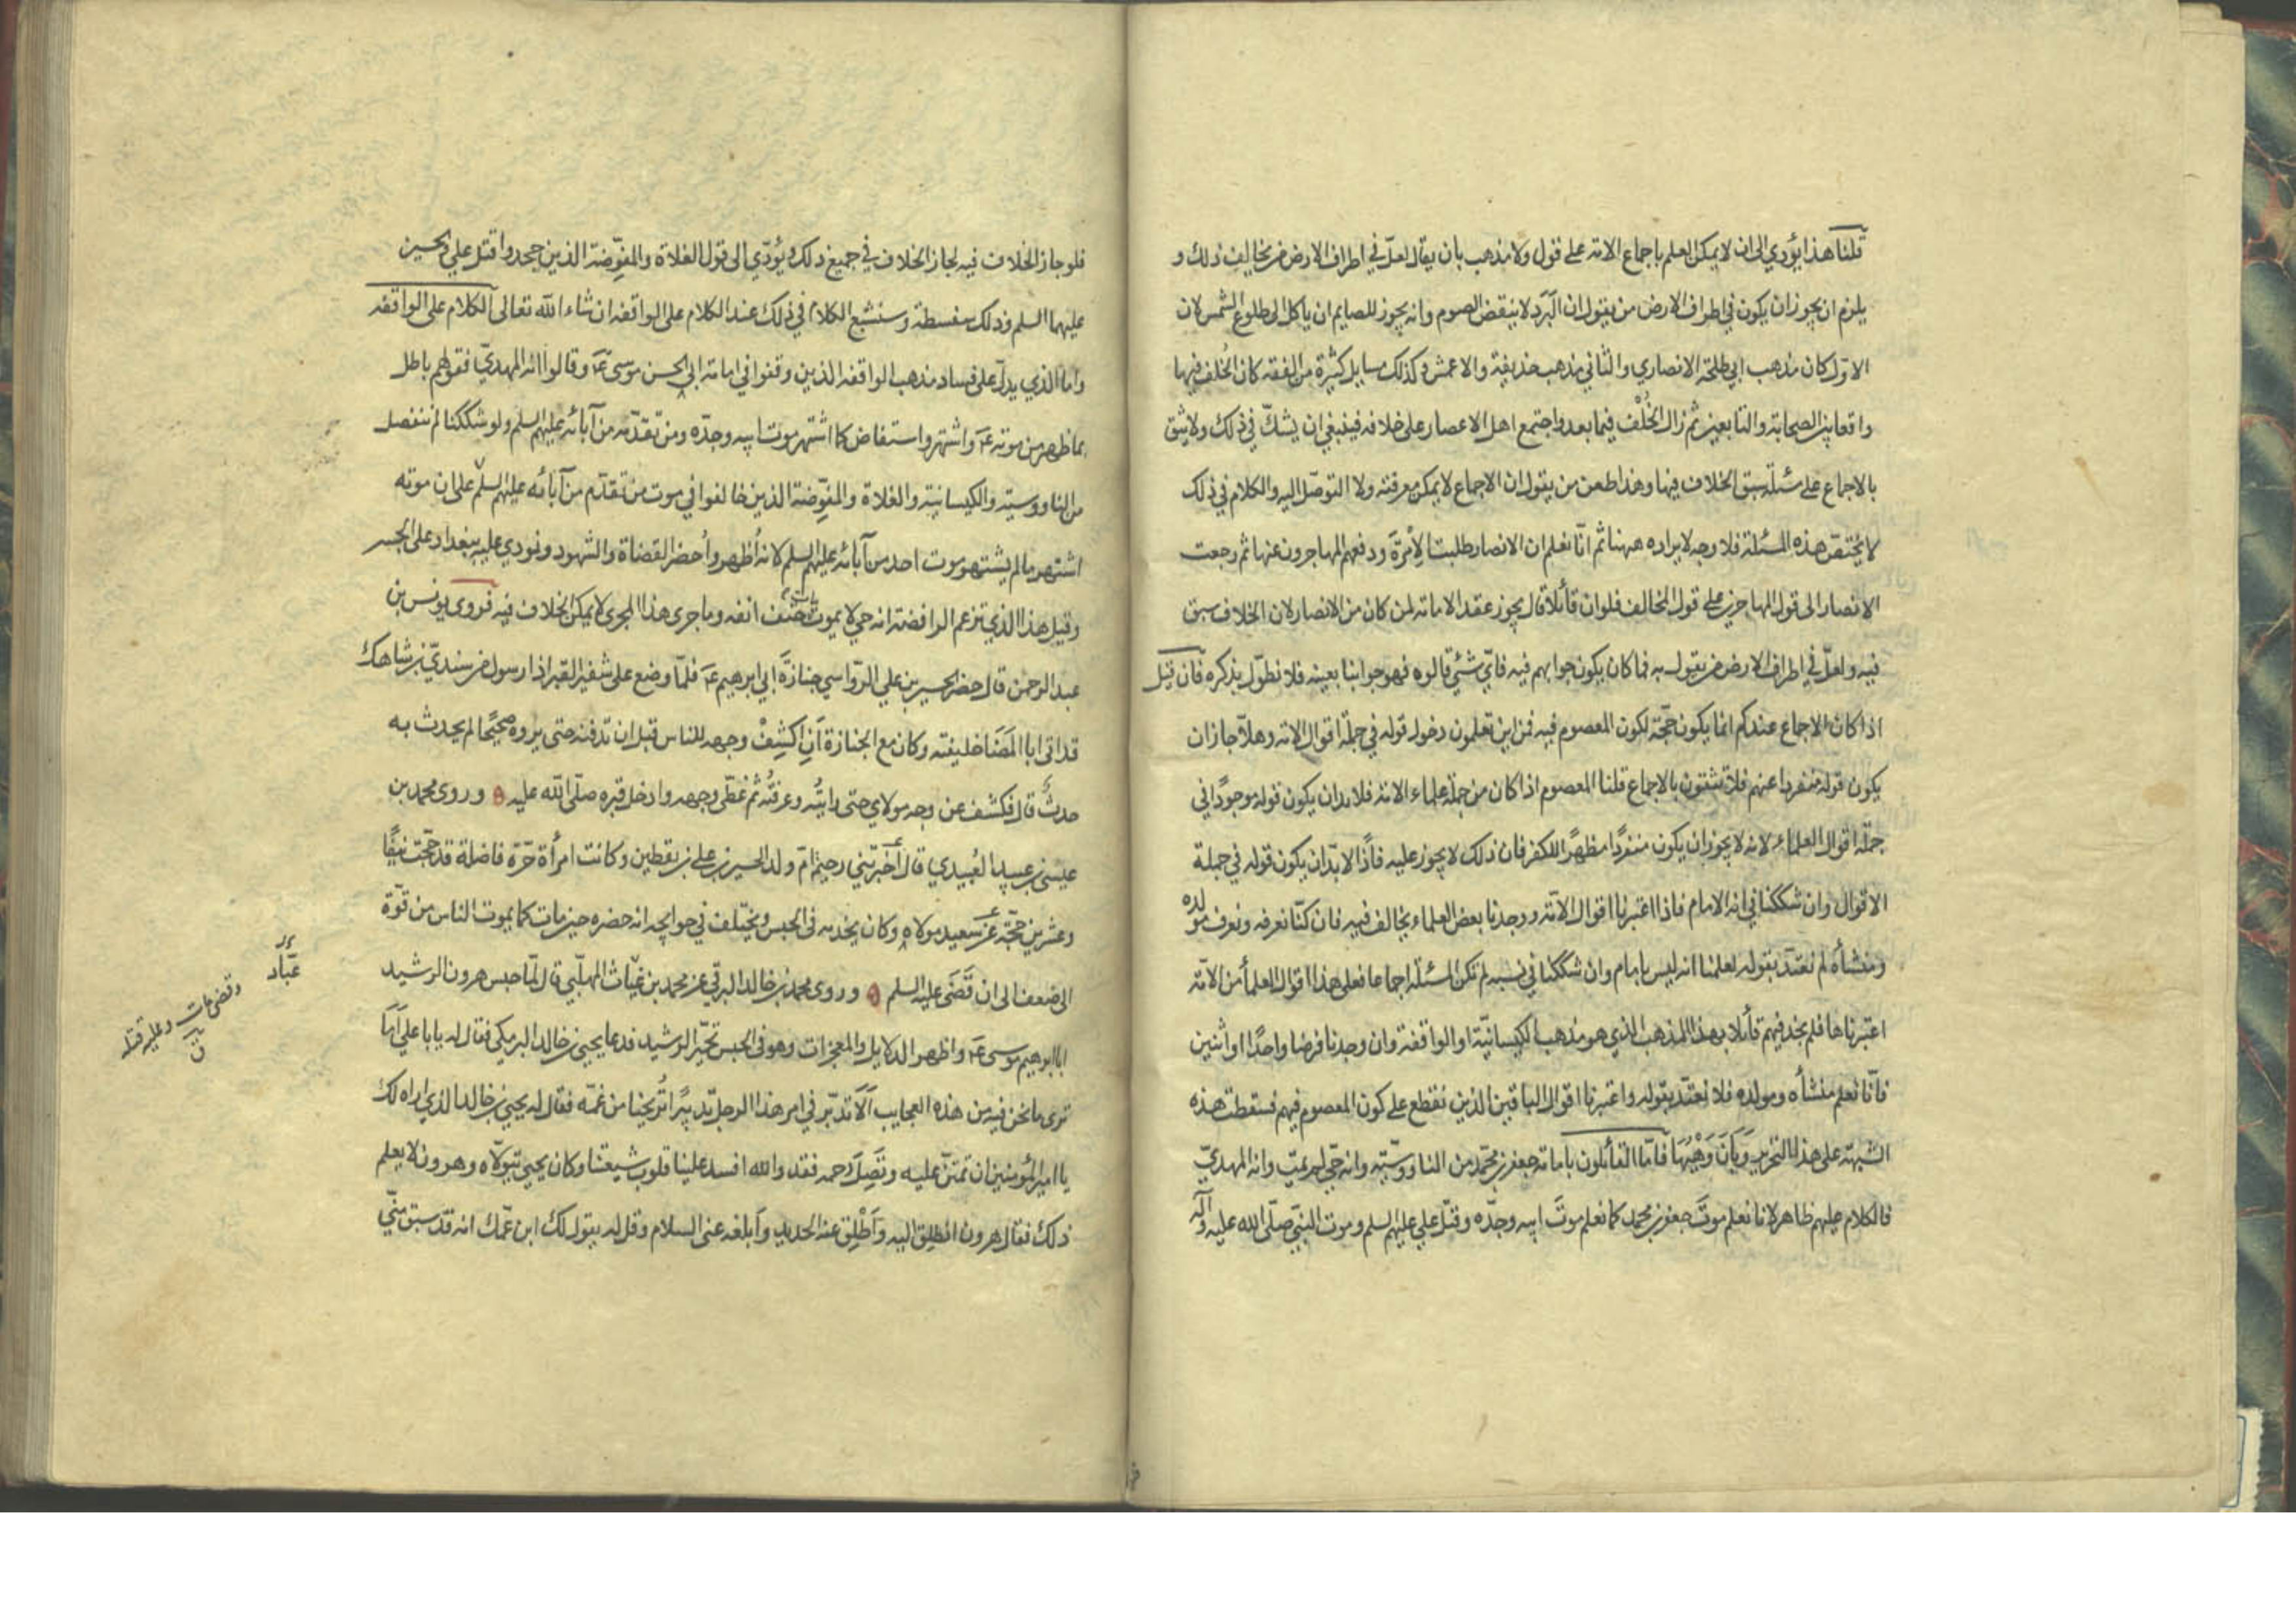 قلنا هذا يؤدي الى ان لا يمكن العلم باجماع الامة على قول ولا مذهب بان يقال لعل في اطراف الارض من يخالف ذلك و
يلزم ان يجوز ان يكون في اطراف الارض من يقول ان البَرَد لا ينقض الصوم وانه يجوز للصايم ان ياكل الى طلوع الشمس لان
الاوّل كان مذهب ابي طلحة الانصاري والثاني مذهب حذيفة والاعمش وكذلك مسايل كثيرة من الفقه كان الخُلف فيها
واقعا بين الصحابة والتابعين ثم زال الخُلْف فيما بعد واجتمع اهل الاعصار على خلافه فينبغي ان يشكّ في ذلك ولا يثق
بالاجماع على مسئلة سبق الخلاف فيها وهذا طعن من يقول ان الاجماع لا يمكن معرفته ولا التوصّل اليه والكلام في ذلك
لا يختصّ هذه المسئلة فلا وجه لايراده ههنا ثم انّا نعلم ان الانصار طلبت الاِمْرَة ودفعهم المهاجرون عنها ثم رجعت
الانصار الى قول المهاجرين على قول المخالف فلو ان قائلاً قال يجوز عقد الامامة لمن كان من الانصار لان الخلاف سبق
فيه ولعلّ في اطراف الارض من يقول به فما كان يكون جوابهم فيه فايّ شئ قالوه فهو جوابنا بعينه فلا نطوّل بذكره فان قيل
اذا كان الاجماع عندكم انما يكون حجّة لكون المعصوم فيه فمن اين تعلمون دخول قوله في جملة اقوال الامة وهلّا جاز ان
يكون قوله منفردا عنهم فلا تثقون بالاجماع قلنا المعصوم اذا كان من جملة علماء الامة فلا بد ان يكون قوله موجودًا في
جملة اقوال العلماء لانه لا يجوز ان يكون منفردًا مظهرًا للكفر فان ذلك لا يجوز عليه فاذًا لا بدّ ان يكون قوله في جملة
الاقوال وان شككنا في انه الامام فاذا اعتبرنا اقوال الامّة ووجدنا بعض العلماء يخالف فيه فان كنّا نعرفه ونعرف مولده
ومنشأه لم نعتدّ بقوله لعلمنا انه ليس بامام وان شككنا في نسبه لم تكن المسئلة اجماعا فعلى هذا اقوال العلمأ من الامّة
اعتبرناها فلم نجد فيهم قائلا بهذا المذهب الذي هو مذهب الكيسانيّة او الواقفة وان وجدنا فرضا واحدًا او اثنين
فانّا نعلم منشأه ومولده فلا نعتدّ بقوله واعتبرنا اقوال الباقين الذين نقطع على كون المعصوم فيهم فسقطت هذه
الشبهة على هذا التحرير وَبَانَ وَهْيُهَا فامّا القائلون بامامة جعفر بن محمّد من الناووسّية وانه حيّ لم يمت وانه المهديّ
فالكلام عليهم ظاهر لانا نعلم موتَ جعفر بن محمد كما نعلم موتَ ابيه وجدّه وقتل علي عليهم السلم وموت النبيّ صلّى الله عليه وآله
فلو جاز الخلاف فيه لجاز الخلاف في جميع ذلك ويُؤدّي الى قول الغلاة والمفوّضة الذين جحدوا قتل علي والحسين
عليهما السلم وذلك سفسطة وسنشبع الكلام في ذلك عند الكلام على الواقفة ان شاء الله تعالى الكلام على الواقفه
واما الذي يدلّ على فساد مذهب الواقفة الذين وقفوا في امامة ابي الحسن موسى عَ وقالوا انه المهديّ فقولهم باطل
بما ظهر من موته عَ واشتهر واستفاض كما اشتهر موت ابيه وجدّه ومن تقدّمه من آبائه عليهم السلم ولو شككنا لم ننفصل
من الناووسيّة والكيسانية والغلاة والمفوِّضة الذين خالفوا في موت من تقدّم من آبائه عليهم السلم على ان موته
اشتهر ما لم يشتهر موت احد من آبائه عليهم السلم لانه أُظهر وأُحضر القضاة والشهود ونودي عليه ببغداد على الجسر
وقيل هذا الذي تزعم الرافضة انه حي لا يموت مات حَتْفَ انفه وما جرى هذا المجرى لا يمكن الخلاف فيه فروى يونس بن
عبد الرحمن قال حضر الحسين بن علي الرّواسي جنازَة ابي ابرهيم عَ فلمّا وضع على شفير القبر اذا رسول من سنديّ بن شاهك
قد اتى ابا المَضَا خليفته وكان مع الجنازة اَنِ اكشِفْ وجهه للناس قبل ان تدفنه حتى يروه صحيحًا لم يحدث به
حدثٌ قال فكشف عن وجه مولاي حتى رايتُه وعرفتُه ثم غطّى وجهه وادخل قبره صلّى الله عليه ه وروى محمد بن
عيسى بن عبيد العُبيدي قال أخبرَتني رحيم امّ ولد الحسين بن علي بن يقطين وكانت امرأة حرّة فاضلة قد حجّت نيّفًا
وعشرين حجّة عن سعيد مولاه وكان يخدمه في الحبس ويختلف في حوايجه انه حضره حين مات كما يموت الناس من قوّة
الى ضعف الى ان قَضَى عليه السلم ه وروى محمد بن خالد البرقي عن محمد بن غياث المهلّبي قال لمّا حبس هرون الرشيد
ابا ابرهيم موسى عَ واظهر الدلايل والمعجزات وهو في الحبس تحيّر الرشيد فدعا يحيى بن خالد البرمكي فقال له يا با علي اَمَا
ترى ما نحن فيه من هذه العجايب اَلَا تدبّر في امر هذا الرجل تدبيرًا تُريحنا من غمّه فقال له يحيى بن خالد الذي اراه لك
يا امير المؤمنين ان تمتنّ عليه وتَصِلَ رحمه فقد والله افسد علينا قلوب شيعتنا وكان يحيى يتولّاه وهرون لا يعلم
ذلك فقال هرون انطلِق اليه وَاَطْلِق عنه الحديد وأبلغه عني السلام وقل له يقول لك ابن عمّك انه قد سبق منّي
عبّاد